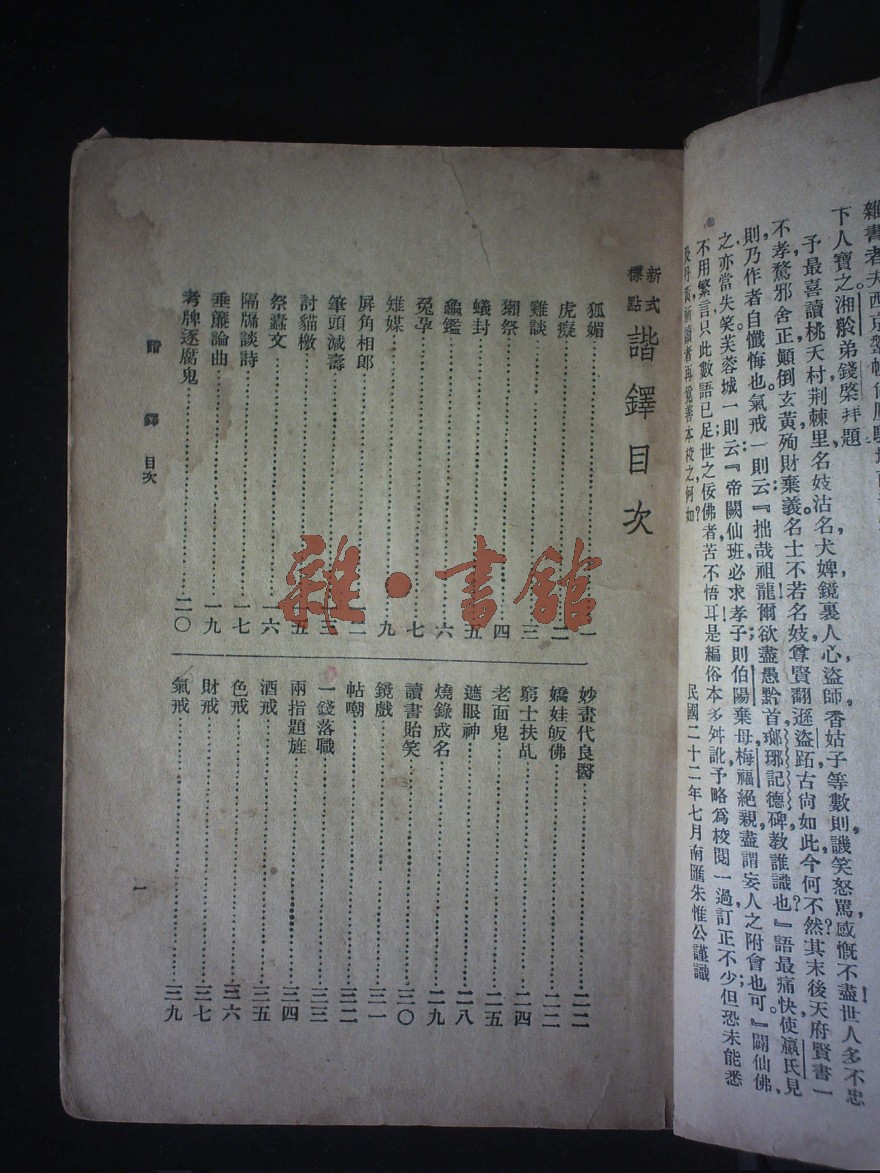 下人寶之湘舲弟錢棨拜題
予最喜讀桃夭村荆棘里名妓沽名犬婢鏡裏人心盜師香姑子等數則譏笑怒罵感慨不盡世人多不忠
不孝騖邪舍正顛倒玄黃殉財棄義名士不若名妓尊賢翻遜盜跖古尙如此今何不然其末後天府賢書一
則乃作者自懺悔也氣戒一則云『拙哉祖龍爾欲盡愚黔首瑯琊記德碑敎誰識也』語最痛快使嬴氏見
之亦當失笑芙蓉城一則云『帝闕仙班必求孝子則伯陽棄母梅福絕親盡謂妄人之附會也可』闢仙佛
不用繁言只此數語已足世之佞佛者苦不悟耳是編俗本多舛訛予略爲校閱一過訂正不少但恐未能悉
民國二十二年七月南匯朱惟公謹識
新式標點 諧鐸目次
狐媚 一
虎癡 二
雞談 三
獺祭 四
蟻封 五
龜鑑 六
兔孕 七
雉媒 九
屏角相郎 一二
筆頭減壽 一三
討貓檄 一五
祭蠹文 一六
隔牖談詩 一七
垂簾論曲 一九
考牌逐腐鬼 二〇
妙畫代良醫 二二
嬌娃皈佛 二二
窮士扶乩 二四
老面鬼 二五
遮眼神 二八
燒錄成名 二九
讀書貽笑 三〇
鏡戲 三一
帖嘲 三二
一錢落職 三三
兩指題旌 三四
酒戒 三五
色戒 三六
財戒 三七
氣戒 三九
諧鐸 目次
一
雜·書館